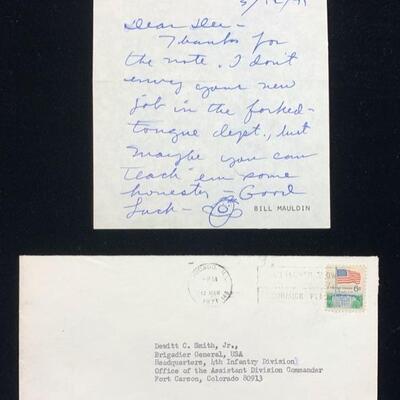 3/12/71
Dear Dee –
Thanks for
the note. I don't
envy your new
job in the forked-
tongue dept., but
maybe you can
teach 'em some
honesty – Good
Luck –
BILL MAULDIN
12 MAR
1971
6¢
Dewitt C. Smith, Jr.,
Brigadier General, USA
Headquarters, 4th Infantry Division)
Office of the Assistant Division Commander
Fort Carson, Colorado 80913